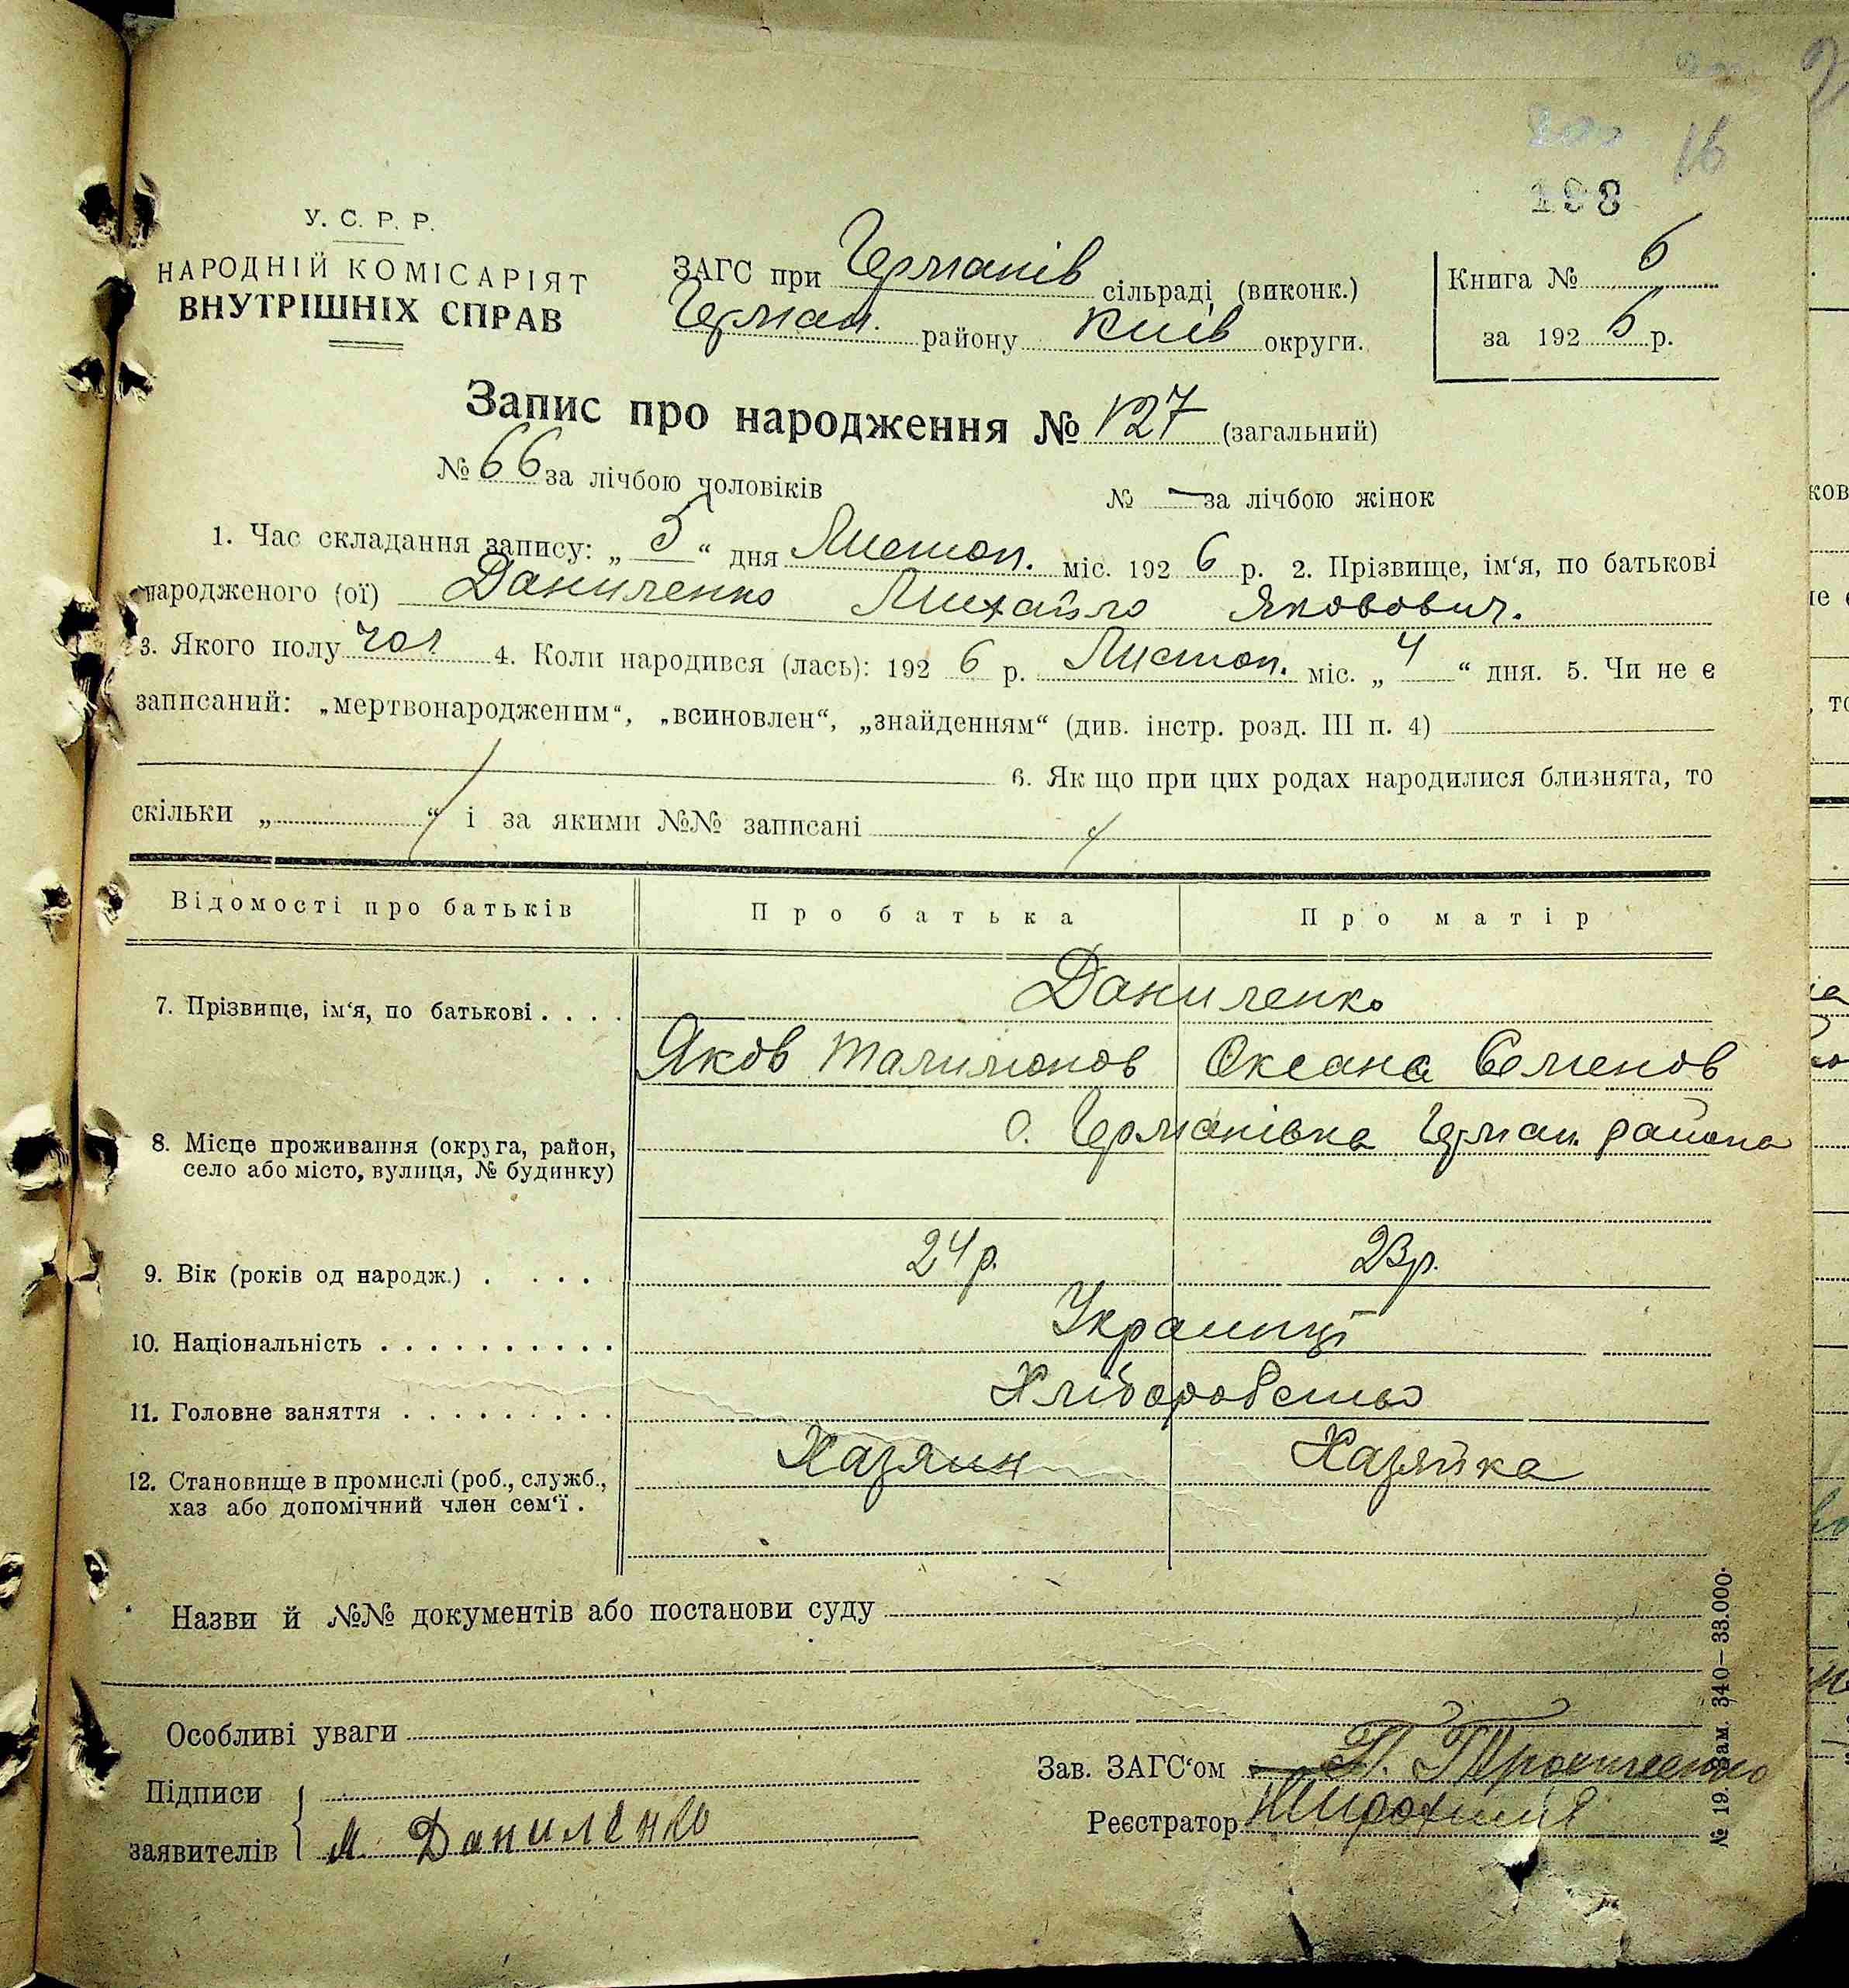 16
198
У. С. Р. Р.
НАРОДНІЙ КОМІСАРІЯТ
ВНУТРІШНІХ СПРАВ
ЗАГС при Германів сільраді (виконк.)
Герман. району Київ округи.
Книга № 6
за 192 6 р.
Запис про народження № 127 (загальний)
№ 66 за лічбою чоловіків № — за лічбою жінок
1. Час складання запису: „ 5 “ дня Листоп. міс. 192 6 р. 2. Прізвище, ім‘я, по батькові
народженого (ої) Даниленко Михайло Якович.
3. Якого полу чол 4. Коли народився (лась): 192 6 р. Листоп. міс. „ 4 “ дня. 5. Чи не є
записаний: „мертвонародженим“, „всиновлен“, „знайденням“ (див. інстр. розд. III п. 4)
6. Як що при цих родах народилися близнята, то
скільки „ “ і за якими №№ записані
Відомості про батьків Про батька Про матір
7. Прізвище, ім‘я, по батькові . . . . Даниленко
Яков Талимонов Оксана Семенов
8. Місце проживання (округа, район, с. Германівка Герман. района
село або місто, вулиця, № будинку)
9. Вік (років од народж.) . . . . 24 р. 23 р.
10. Національність . . . . . . . . . . Українці
11. Головне заняття . . . . . . . . . Хліборобство
12. Становище в промислі (роб., служб., Хазяин Хазяйка
хаз або допомічний член сем‘ї .
Назви й №№ документів або постанови суду
Особливі уваги
Підписи
заявителів М. Даниленко
Зав. ЗАГС‘ом
Реєстратор
№ 19. Зам. 340—33.000.